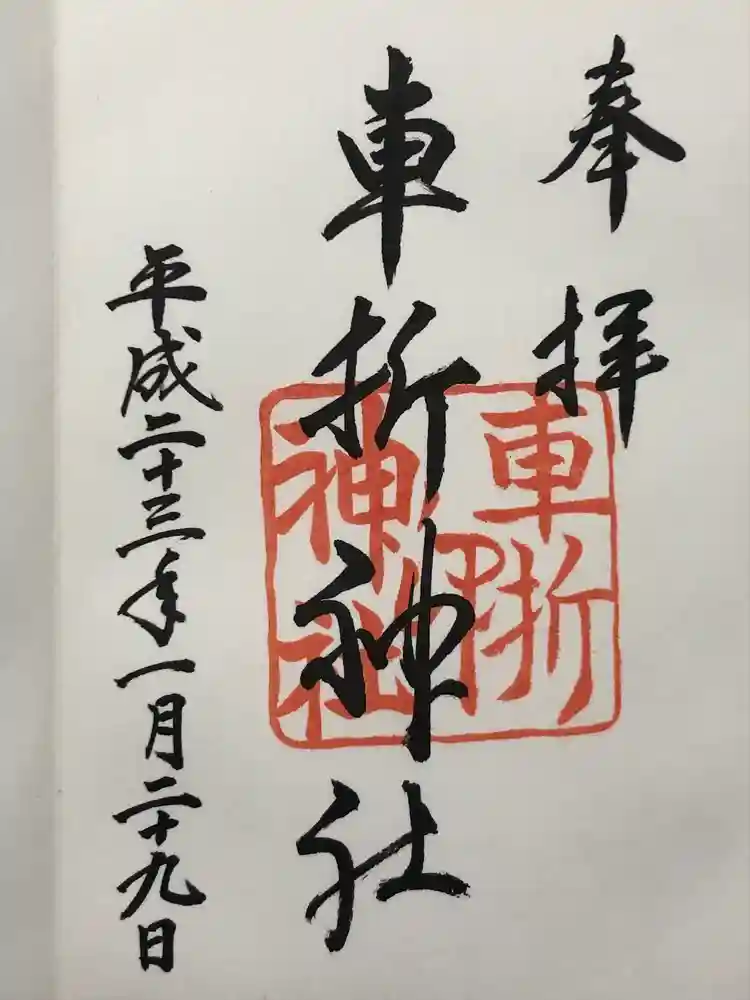 奉拝
車折神社
車折
神社
平成二十三年一月二十九日